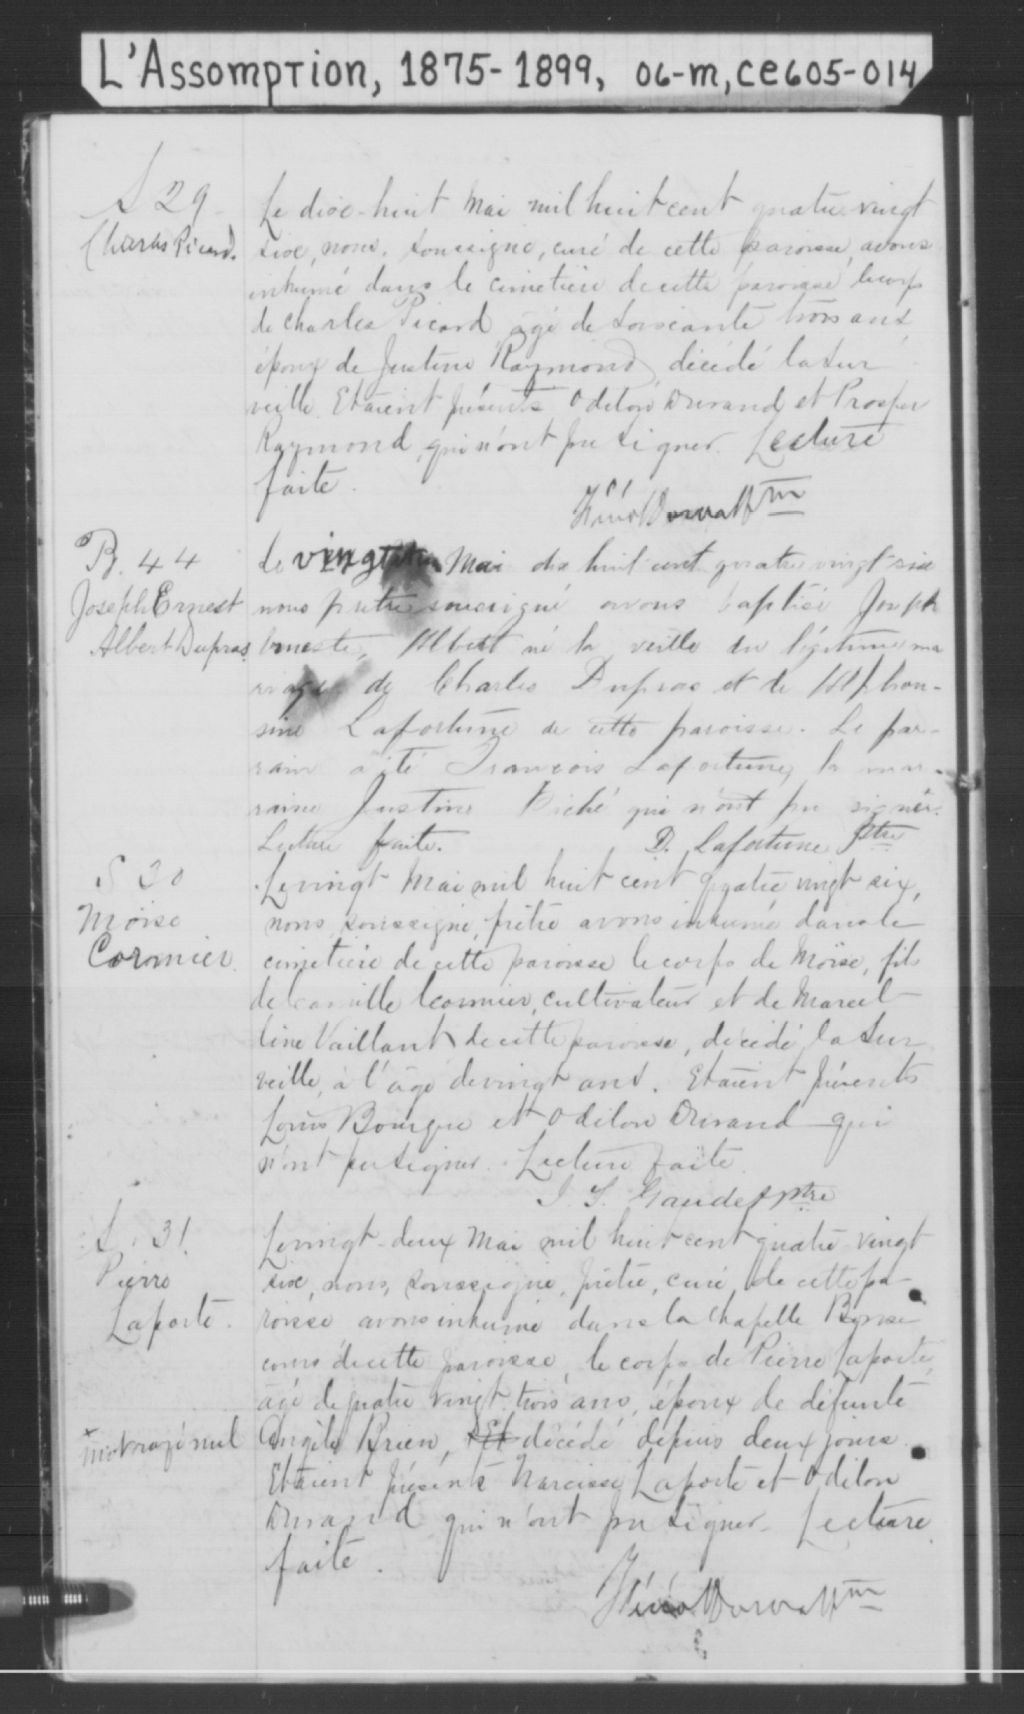 L'Assomption, 1875-1899, 06-m, ce605-014
S 29
Charles Picard.
Le dix-huit Mai mil huit cent quatre-vingt
six, nous, soussigné, curé de cette paroisse, avons
inhumé dans le cimetière de cette paroisse le corps
de Charles Picard âgé de soixante trois ans
époux de Justine Raymond, décédé la sur
veille. Etaient présents Odilon Durand et Prosper
Raymond, qui n'ont pu signer. Lecture
faite.
B. 44
Joseph Ernest
Albert Dupras.
Le vingt Mai huit cent quatre vingt six
nous prêtre soussigné avons baptisé Joseph
Erneste, Albert né la veille du légitime ma
riage de Charles Dupras et de Alphon-
sine Lafortune de cette paroisse. Le par-
rain a été François Lafortune, la mar-
raine Justine Piché qui n'ont pu signer.
Lecture faite.
D. Lafortune Ptre
S 30
Moïse
Cormier.
Le vingt Mai mil huit cent quatre vingt six,
nous, soussigné, prêtre avons inhumé dans le
cimetière de cette paroisse le corps de Moïse, fils
de Camille Cormier, cultivateur et de Marcel-
line Vaillant de cette paroisse, décédé la sur
veille, à l'âge de vingt ans. Etaient présents
Louis Bourque et Odilon Durand qui
n'ont pu signer. Lecture faite
J. S. Gaudet ptre
S. 31.
Pierre
Laporte.
Le vingt-deux Mai mil huit cent quatre-vingt
six, nous, soussigné, prêtre, curé de cette pa-
roisse avons inhumé dans la chapelle Bonse
cours de cette paroisse, le corps de Pierre Laporte,
âgé de quatre vingt trois ans, époux de défunte
mot rayé nul
Angèle Brien, Et décédé depuis deux jours.
Etaient présents Narcisse Laporte et Odilon
Durand qui n'ont pu signer. Lecture
faite.